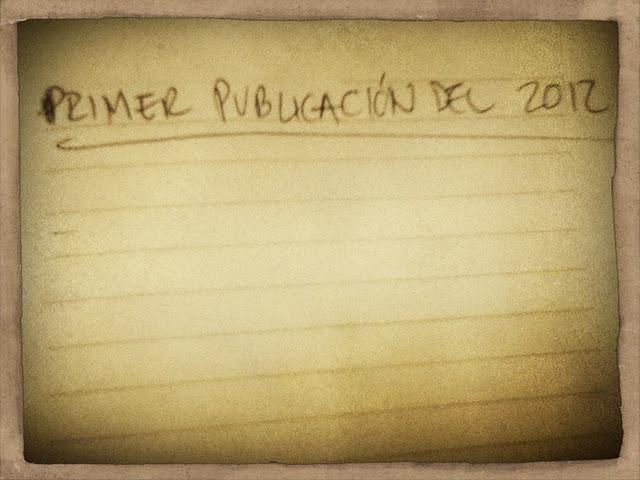 PRIMER PUBLICACIÓN DEL 2012